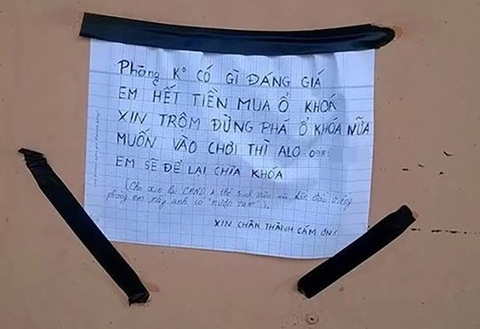 Phòng K° CÓ GÌ ĐÁNG GIÁ
EM HẾT TIỀN MUA Ổ KHOÁ
XIN TRỘM ĐỪNG PHÁ Ổ KHÓA NỮA
MUỐN VÀO CHƠI THÌ ALO 098
EM SẼ ĐỂ LẠI CHÌA KHÓA
(Cho xin lại CMND + thẻ sinh viên mà lần đầu
phòng em này anh có "mượn tạm")
XIN CHÂN THÀNH CÁM ƠN!